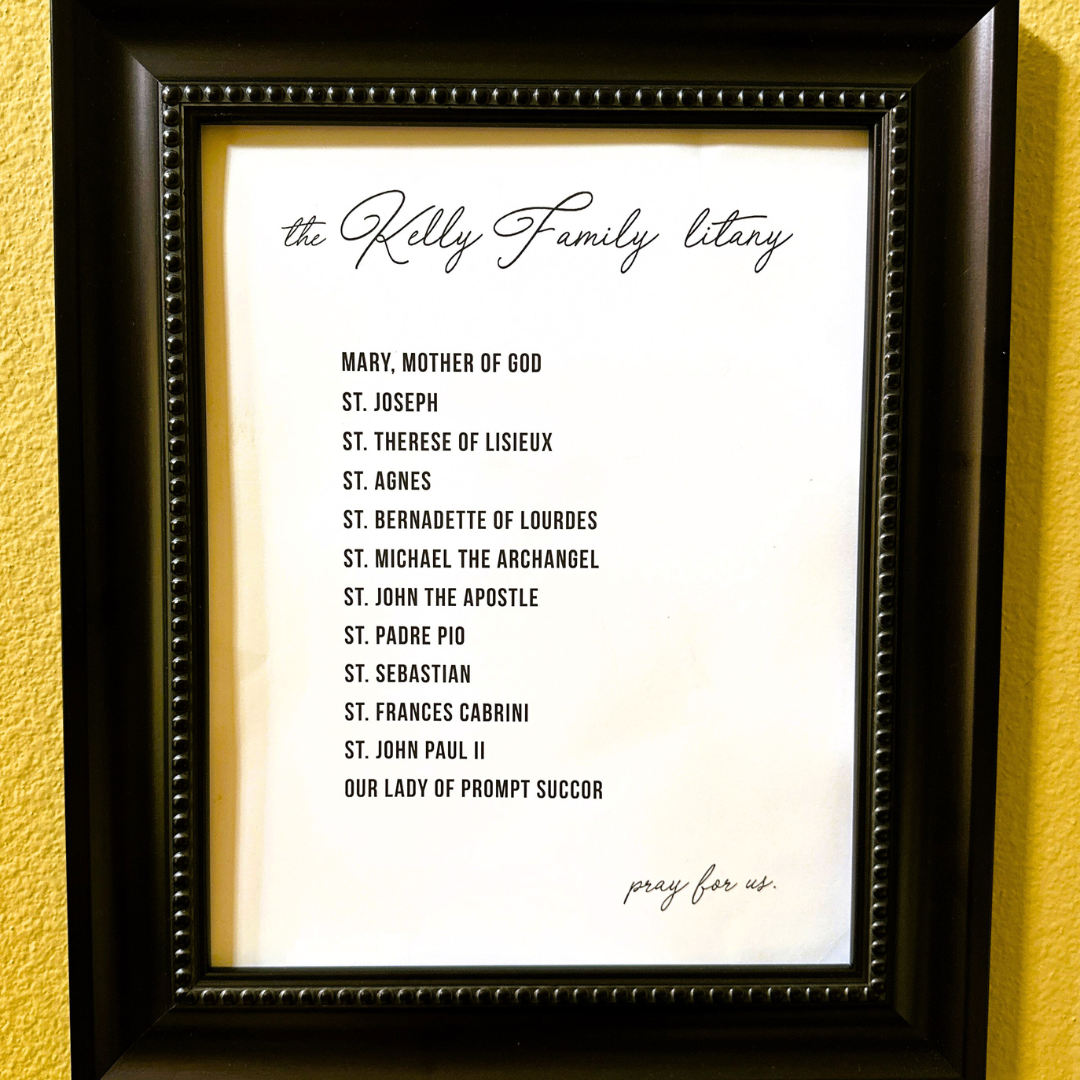 the Kelly Family litany
MARY, MOTHER OF GOD
ST. JOSEPH
ST. THERESE OF LISIEUX
ST. AGNES
ST. BERNADETTE OF LOURDES
ST. MICHAEL THE ARCHANGEL
ST. JOHN THE APOSTLE
ST. PADRE PIO
ST. SEBASTIAN
ST. FRANCES CABRINI
ST. JOHN PAUL II
OUR LADY OF PROMPT SUCCOR
pray for us.